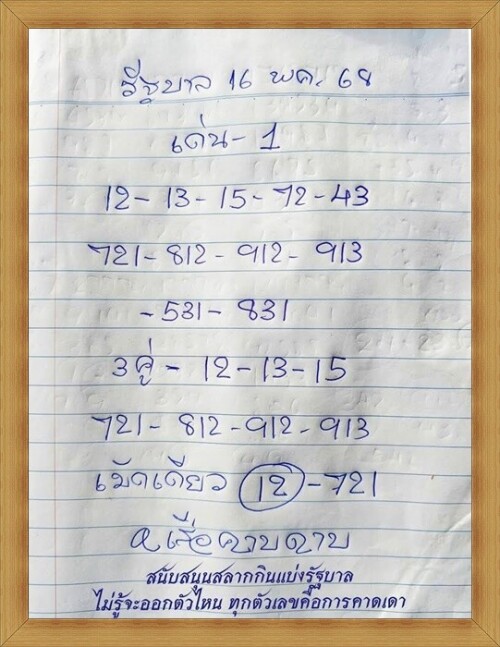 รัฐบาล 16 พค. 68
เด่น - 1
12 - 13 - 15 - 72 - 43
721 - 812 - 912 - 913
- 531 - 831
3 คู่ - 12 - 13 - 15
721 - 812 - 912 - 913
เม็ดเดียว 12 - 721
อ.เสือคาบดาบ
สนับสนุนสลากกินแบ่งรัฐบาล
ไม่รู้จะออกตัวไหน ทุกตัวเลขคือการคาดเดา